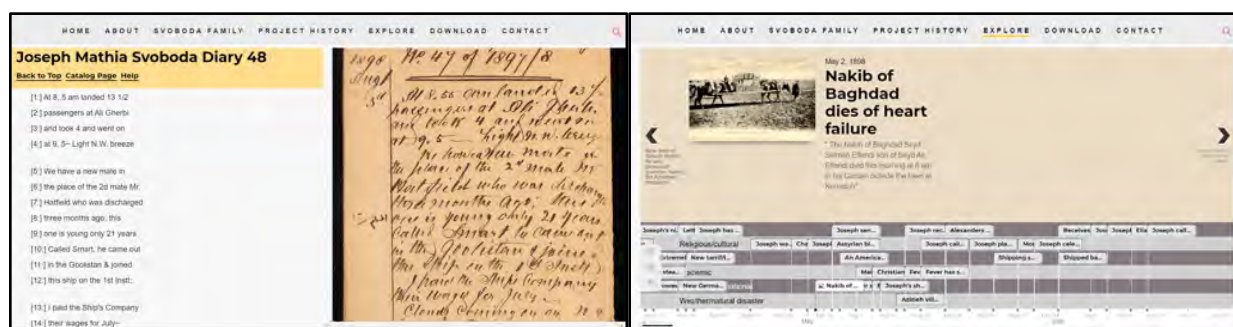 HOME ABOUT SVOBODA FAMILY PROJECT HISTORY EXPLORE DOWNLOAD CONTACT
Joseph Mathia Svoboda Diary 48
Back to Top Catalog Page Help
[1:] At 8, 5 am landed 13 1/2
[2:] passengers at Ali Gherbi
[3:] and took 4 and went on
[4:] at 9, 5~ Light N.W. breeze
[5:] We have a new mate in
[6:] the place of the 2d mate Mr.
[7:] Hatfield who was discharged
[8:] three months ago; this
[9:] one is young only 21 years
[10:] Called Smart, he came out
[11:] in the Gookistan & joined
[12:] this ship on the 1st Inst:;
[13:] I paid the Ship's Company
[14:] their wages for July~
1898
Augt
3d
No 47 of 1897/8
At 8,55 am landed 13 1/2
passengers at Ali Gherbi
and took 4 and went on
at 9.5 — Light N.W. breeze
We have a New mate in
the place of the 2d mate Mr
Hatfield who was discharged
three months ago; this
one is young only 21 years
Called Smart he came out
in the Gookistan & joined
this Ship on the 1st Inst;
I paid the Ship's Company
their wages for July —
Clouds Coming on on
HOME ABOUT SVOBODA FAMILY PROJECT HISTORY EXPLORE DOWNLOAD CONTACT
May 2, 1898
Nakib of
Baghdad
dies of heart
failure
" The Nakib of Baghdad Seyd
Selman Effendi son of Seyd Ali
Effendi died this morning at 8 am
in his Garden outside the town at
Joseph's ri... Lett Joseph has... Joseph sen... Joseph rec... Alexanders ... Receives Jos Joseph Ella Joseph call...
Religious/cultural Joseph wa... Che Joseph Assyrian bi... Joseph call... Joseph pla... Mos Joseph cele...
Extremel New tarriff/t... An America... Shipping s... Shipped ba...
Mai Christian Fev Fever has s...
New Germa... Nakib of ... Joseph's sh...
Weather/natural disaster Azizieh vill...